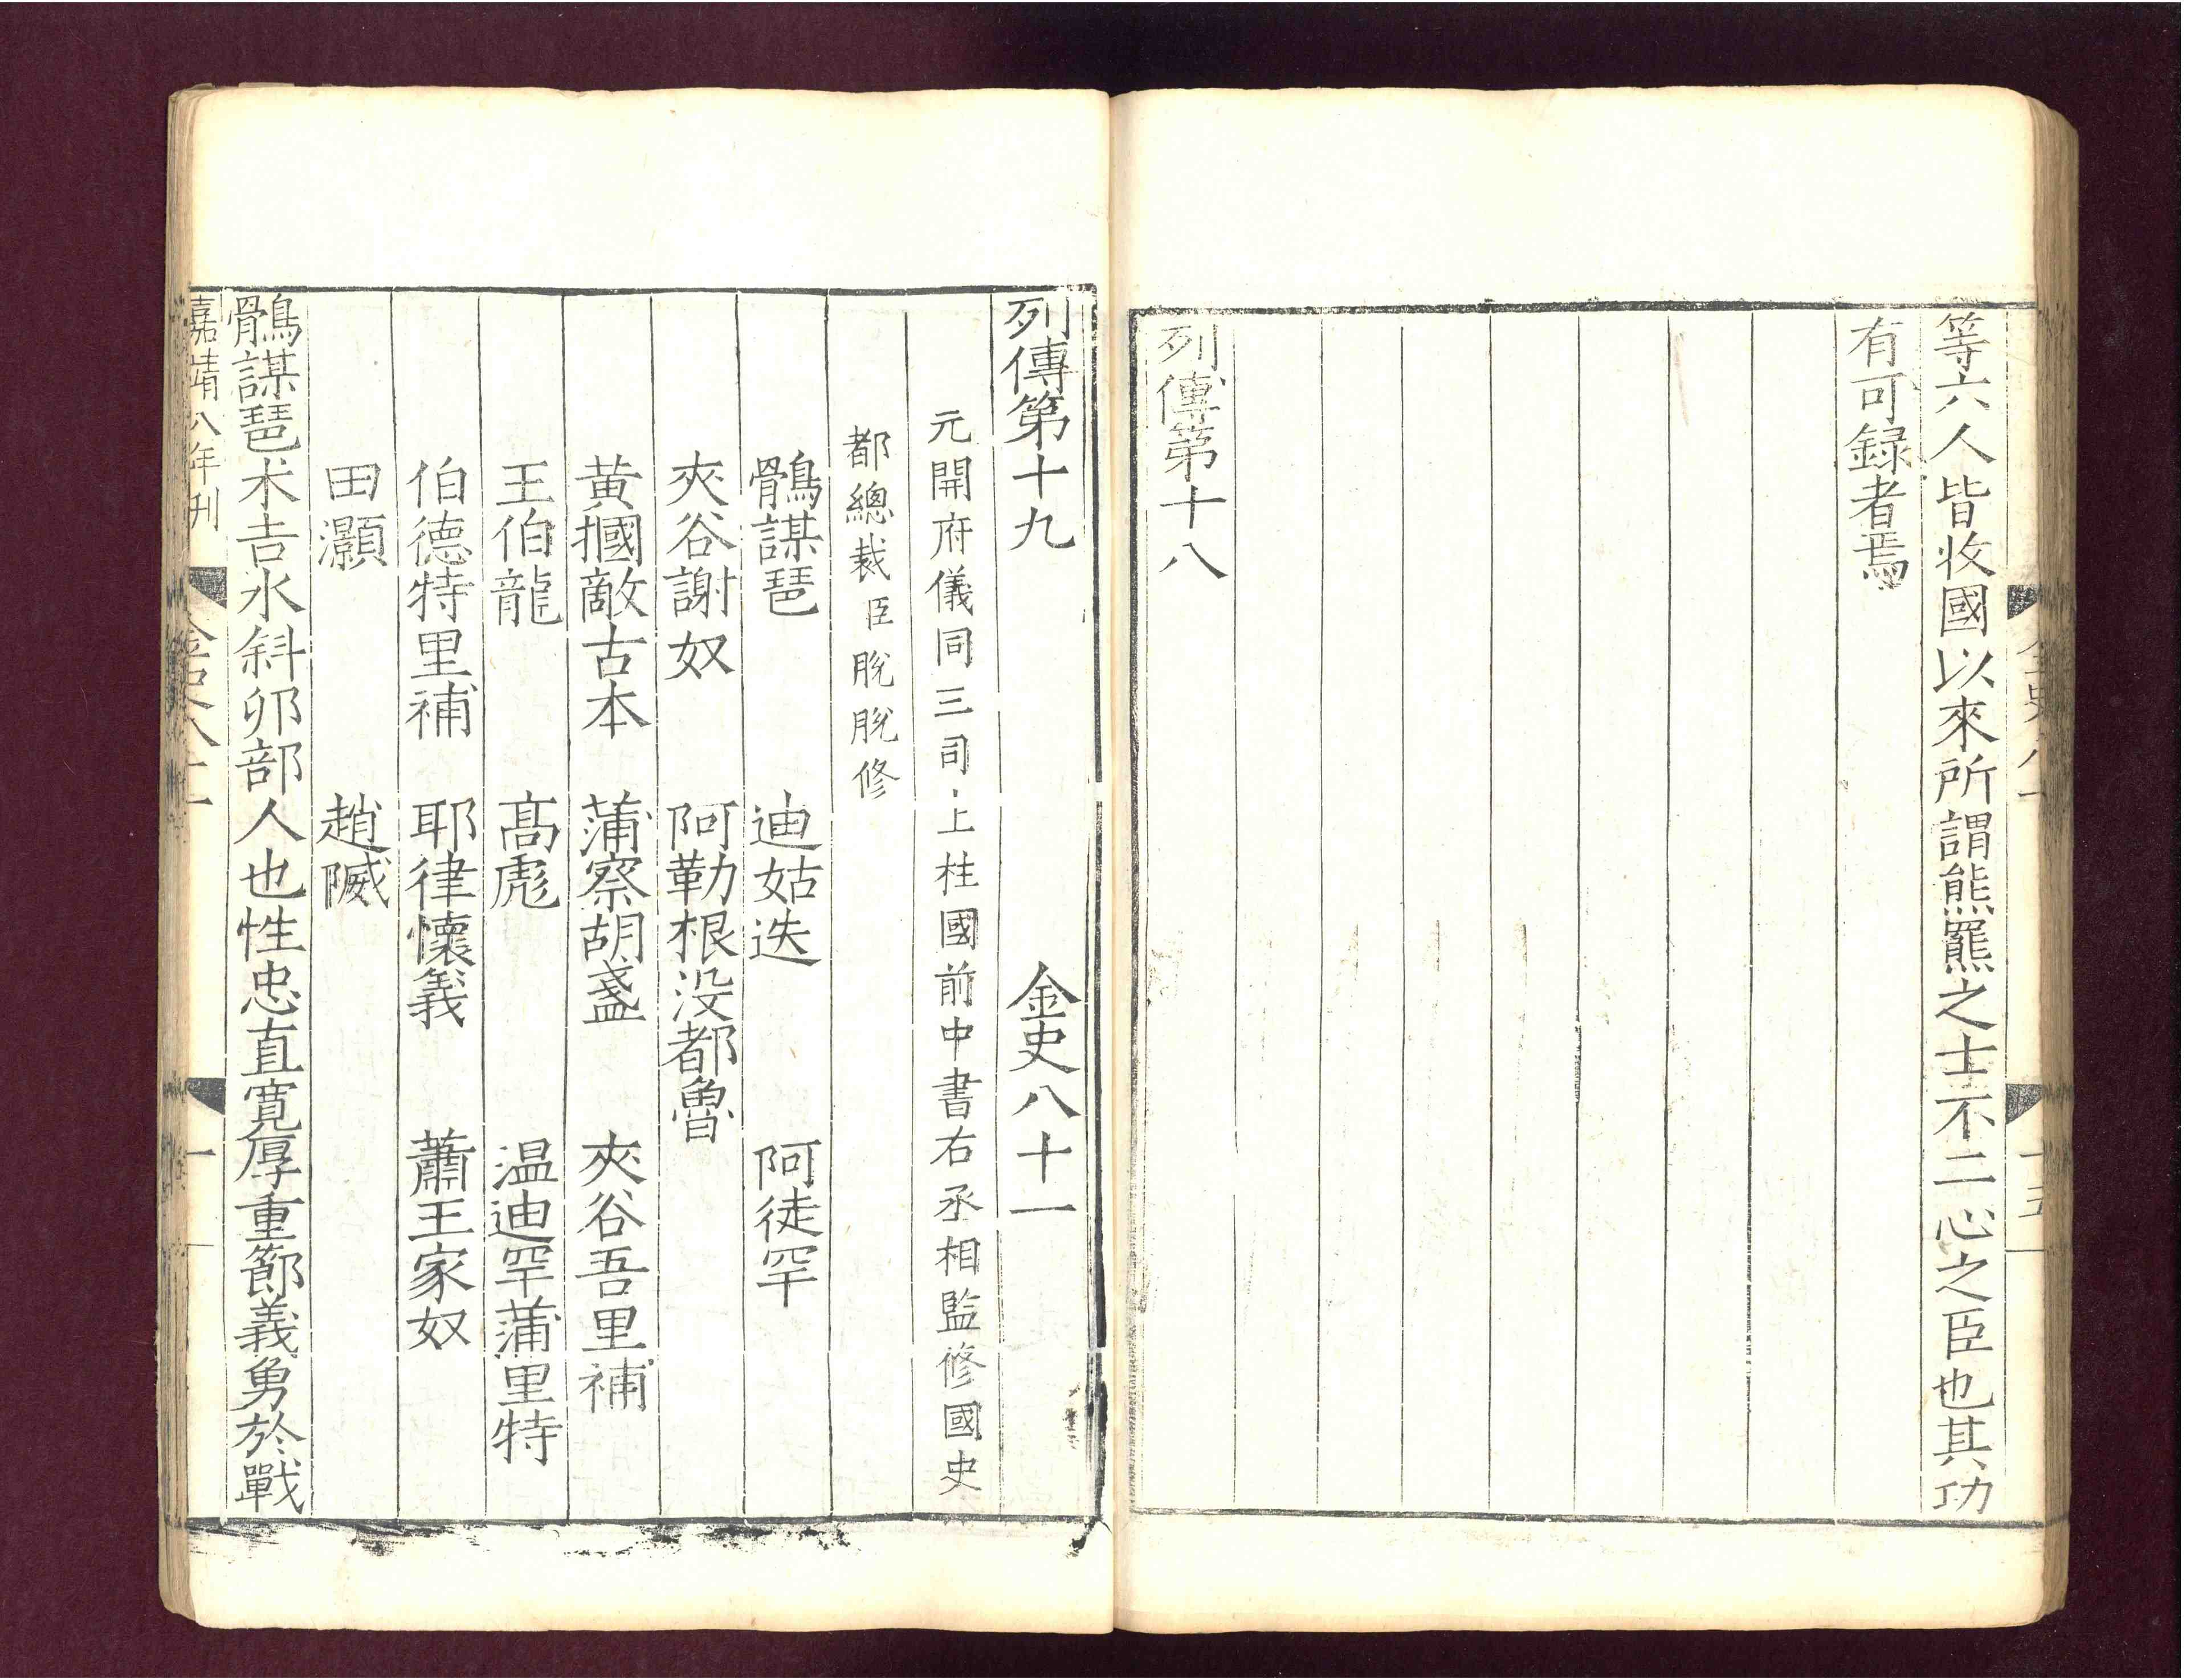 等六人皆收國以來所謂熊羆之士不二心之臣也其功
有可録者焉
列傳第十八
列傳第十九 金史八十一
元開府儀同三司上柱國前中書右丞相監修國史
都總裁臣脫脫修
鶻謀琶 迪姑迭 阿徒罕
夾谷謝奴 阿勒根没都魯
黄摑敵古本 蒲察胡盞 夾谷吾里補
王伯龍 髙彪 温迪罕蒲里特
伯德特里補 耶律懷義 蕭王家奴
田灝 趙隇
鶻謀琶术吉水斜卯部人也性忠直寛厚重節義勇於戰
嘉靖八年刊 金史八十一 一